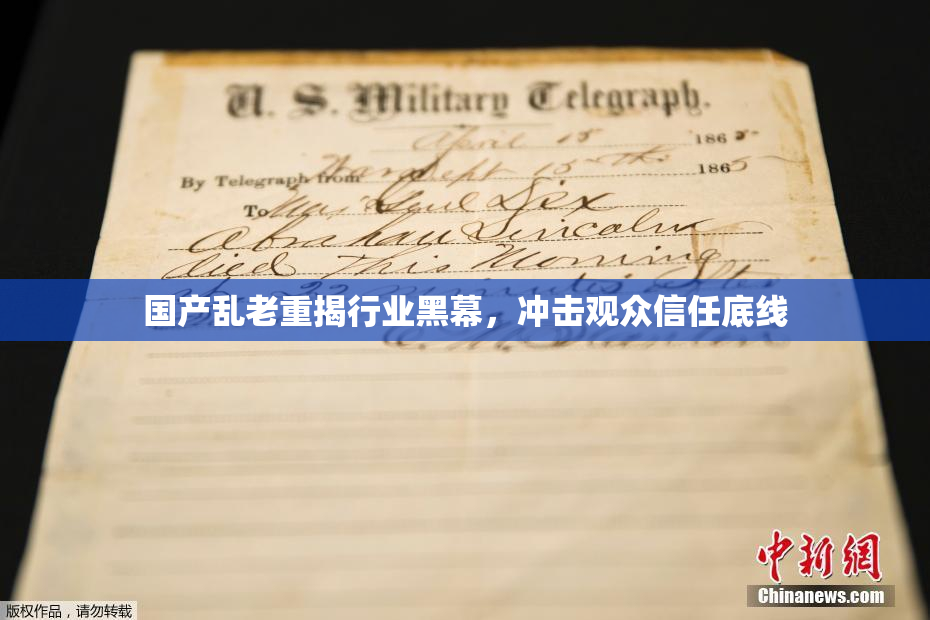 U. S. Military Telegraph.
April 15 1865
By Telegraph from War Dept 15th 1865
To Maj Genl Dix
Abraham Lincoln
died This Morning
at 22 minutes after
国产乱老重揭行业黑幕，冲击观众信任底线
E. M. Stanton
中新網
Chinanews.com
版权作品，请勿转载